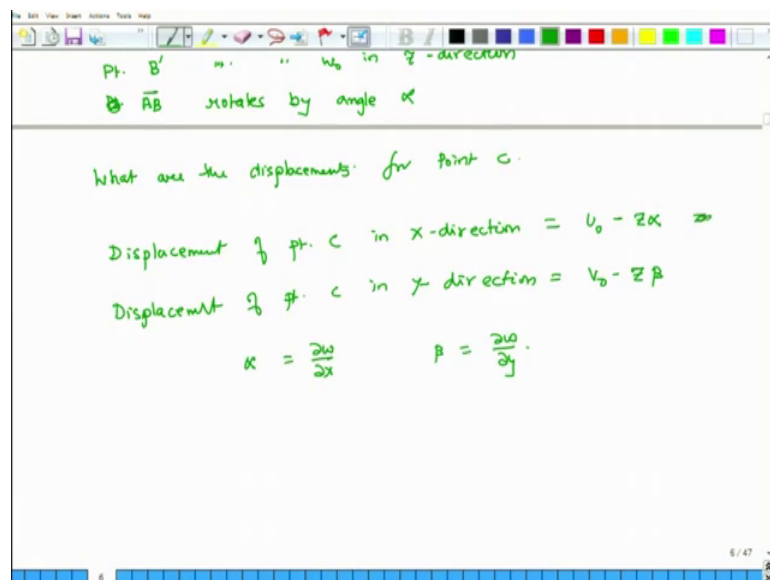 File Edit View Insert Actions Tools Help
Pt. B' " " w₀ in z-direction
AB rotates by angle α
What are the displacements for Point C.
Displacement of pt. C in x-direction = u₀ - zα
Displacement of pt. C in y direction = v₀ - zβ
α = ∂w/∂x β = ∂w/∂y.
6 / 47
6